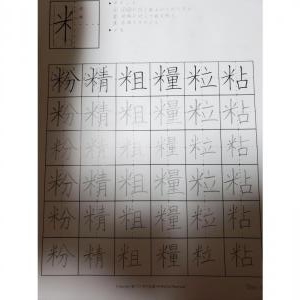 米
粉精粗糧粒粘
粉精粗糧粒粘
粉精粗糧粒粘
粉精粗糧粒粘
粉精粗糧粒粘
粉精粗糧粒粘